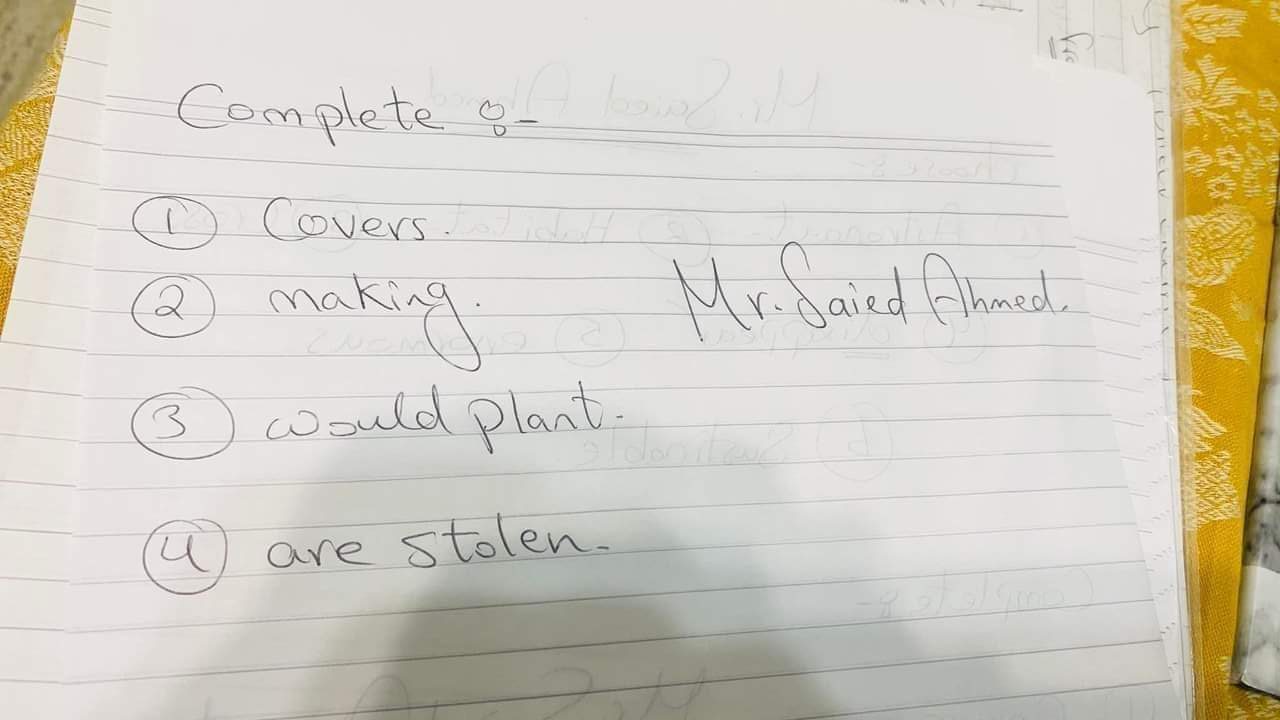 Complete :-
① Covers.
② making.
Mr. Saied Ahmed.
③ would plant.
④ are stolen.